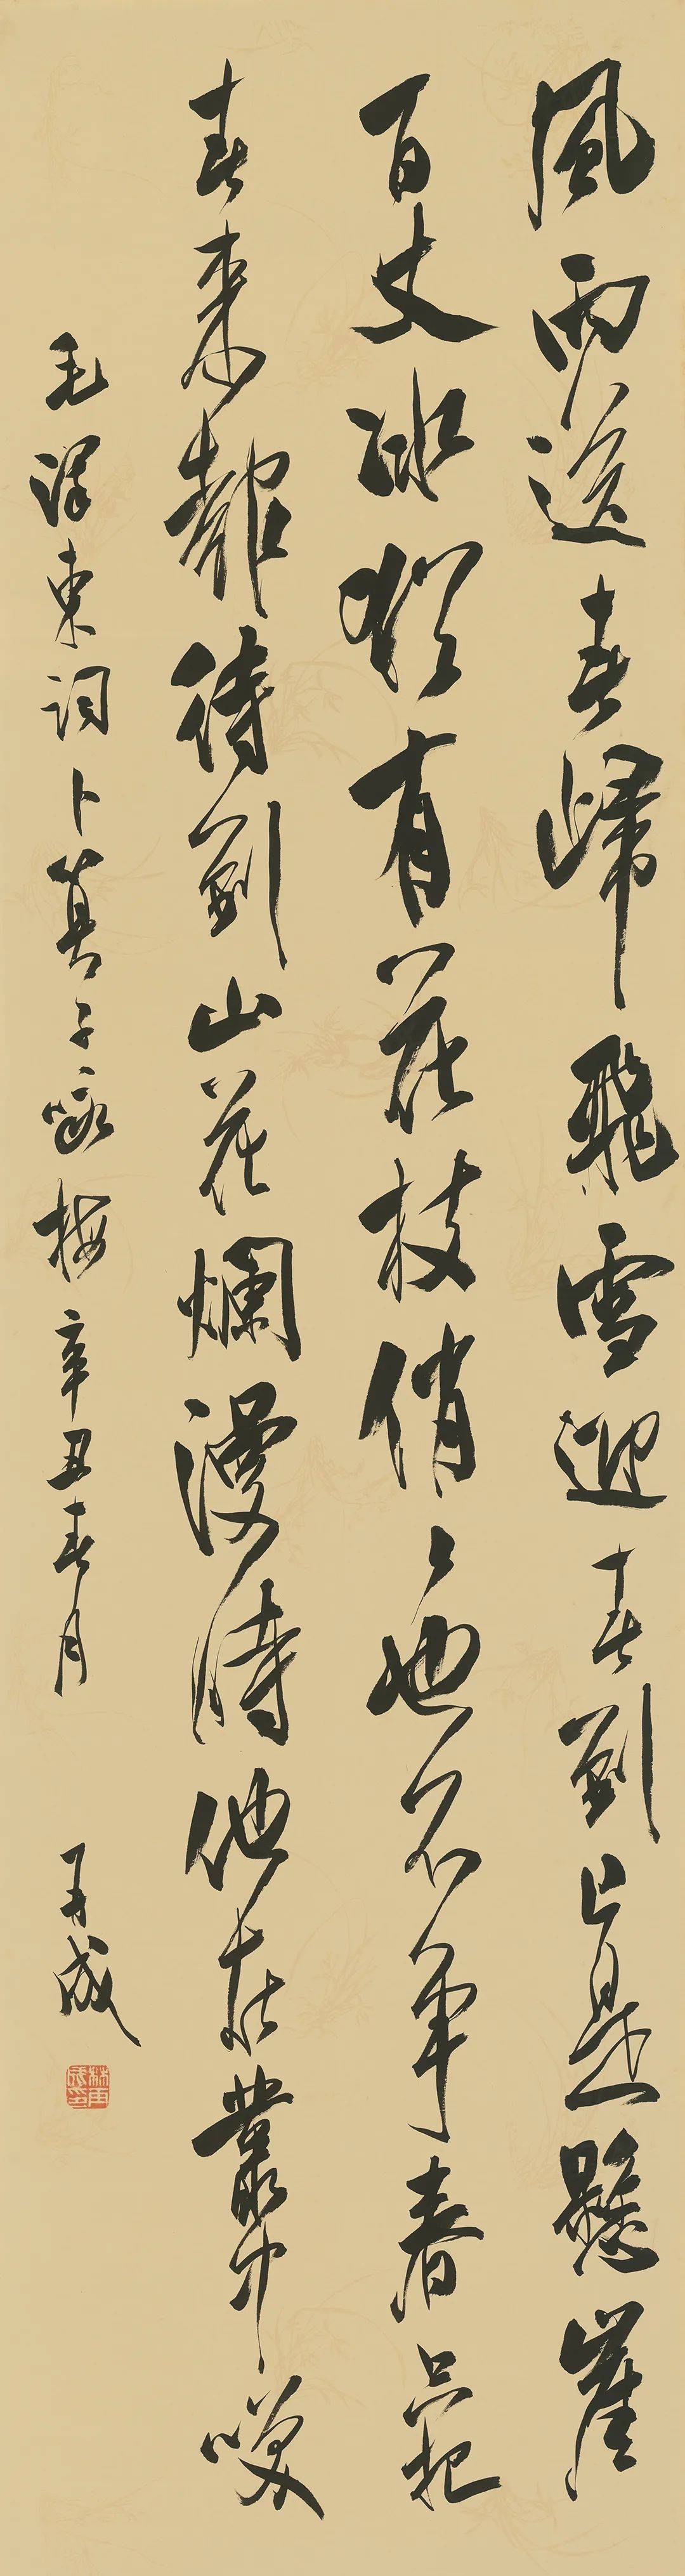 風雨送春歸飛雪迎春到已是懸崖
百丈冰猶有花枝俏俏也不爭春只把
春來報待到山花爛漫時他在叢中笑
毛澤東詞卜算子咏梅辛丑春月 再成
林再成印